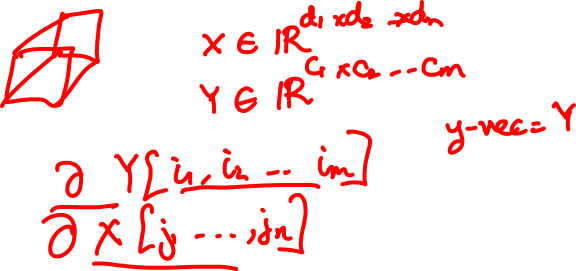 X ∈ ℝ^{d₁ × d₂ ··· × dₙ}
Y ∈ ℝ^{c₁ × c₂ ··· cₘ}
y-vec = Y
∂ Y[i₁, i₂ ··· iₘ]
∂ X[j ····, jₙ]